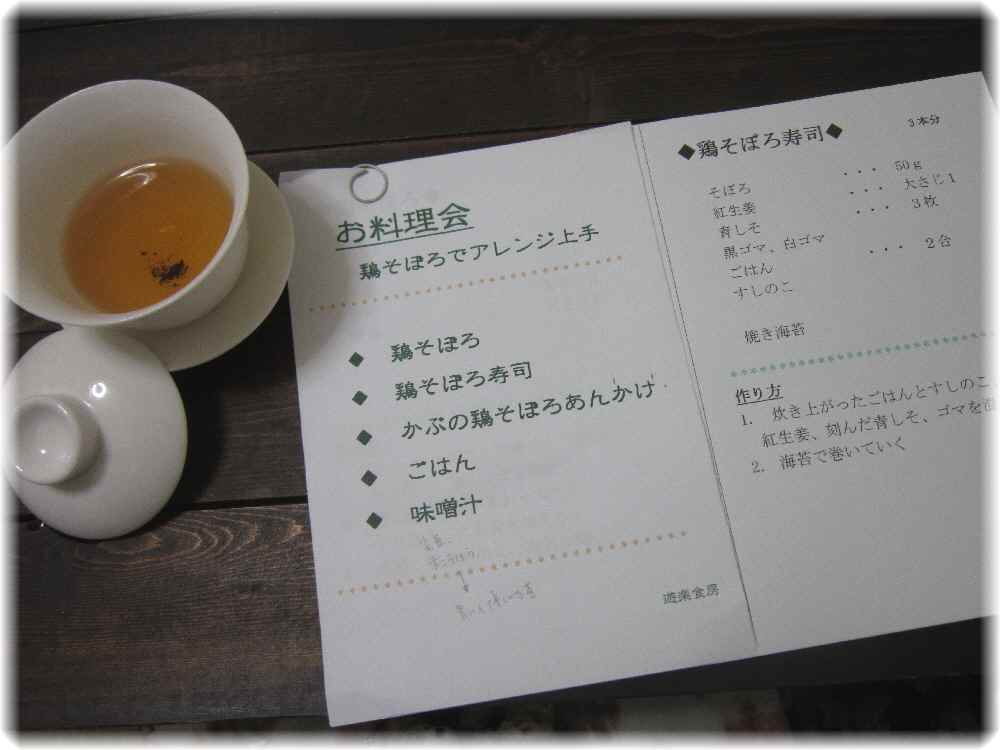 お料理会
鶏そぼろでアレンジ上手
◆ 鶏そぼろ
◆ 鶏そぼろ寿司
◆ かぶの鶏そぼろあんかけ
◆ ごはん
◆ 味噌汁
遊楽食房
◆鶏そぼろ寿司◆ 3本分
そぼろ ・・・ 50g
紅生姜 ・・・ 大さじ1
青しそ ・・・ 3枚
黒ゴマ、白ゴマ
ごはん ・・・ 2合
すしのこ
焼き海苔
作り方
1. 炊き上がったごはんとすしのこ、
紅生姜、刻んだ青しそ、ゴマを
2. 海苔で巻いていく